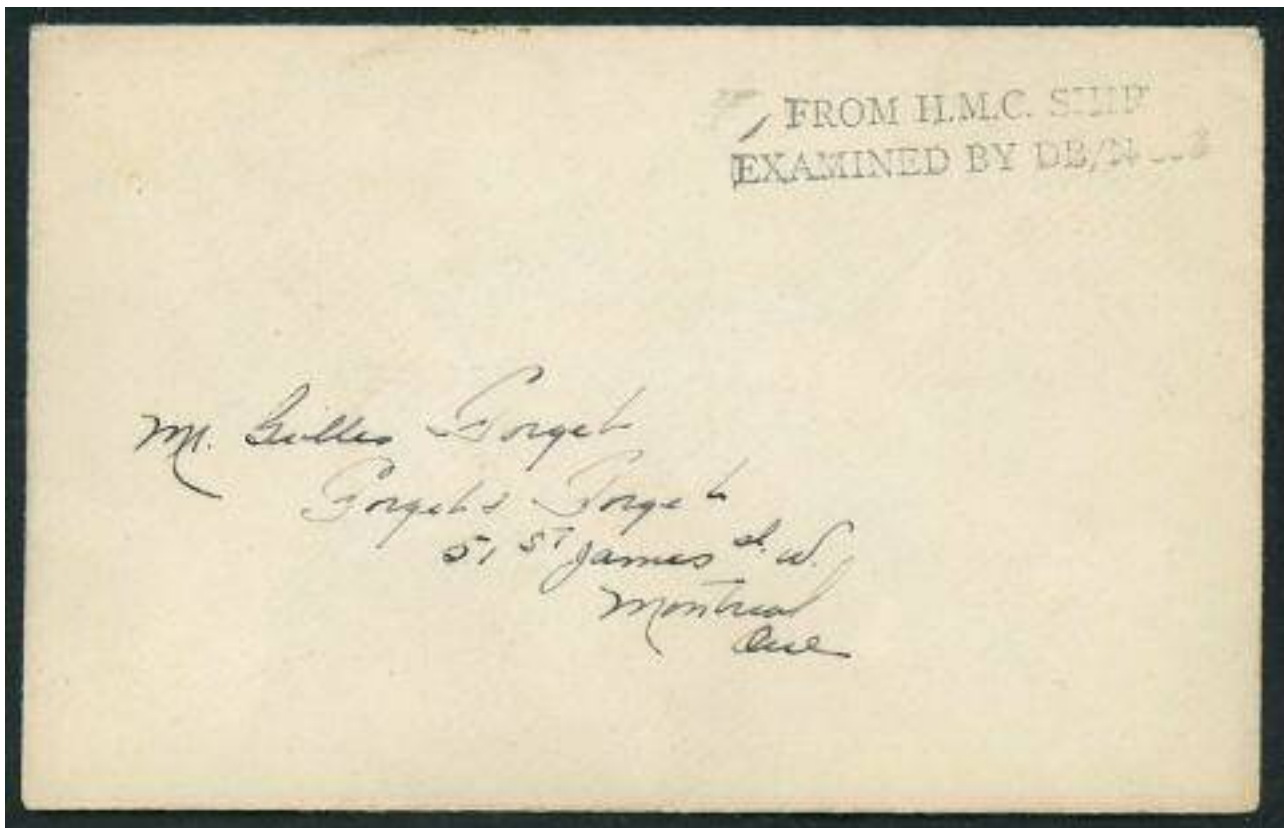 FROM H.M.C. SHIP
EXAMINED BY DB/N
Mr. Gilles Forget
Forget & Forget
51 St James St. W.
Montreal
Que